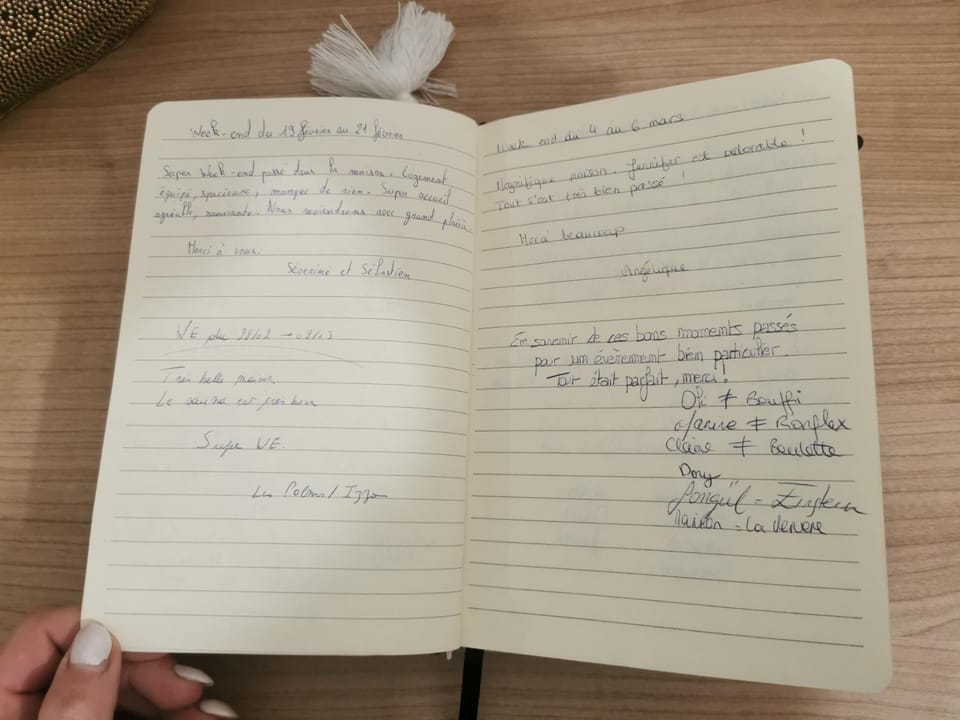 Week-end du 19 février au 21 février
Super Week-end passé dans la maison. Logement
équipé, spacieuse, manque de rien. Super accueil
agréable, souriante. Nous reviendrons avec grand plaisir.
Merci à vous.
Séverine et Sébastien
WE du 28/02 → 02/03
Très belle maison.
Le sauna est très bien
Super WE.
Les
Week end du 4 au 6 mars
Magnifique maison. Jennifer est adorable !
Tout s'est très bien passé !
Merci beaucoup
Angélique
En souvenir de ces bons moments passés
pour un évènement bien particulier.
Tout était parfait, merci !
≠ Bouffi
≠ Ronflex
Claire ≠ Boulette
Dory
Songül =
= La